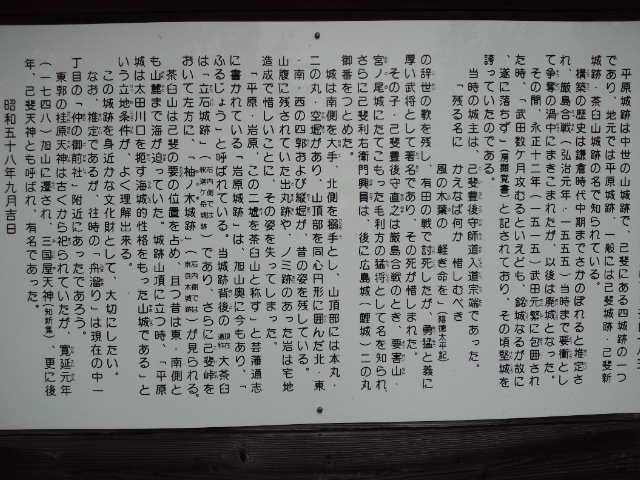 平原城跡は中世の山城跡で、己斐にある四城跡の一つ
であり、地元では平原城跡、一般には己斐城跡・己斐新
城跡・茶臼山城跡の名で知られている。
構築の歴史は鎌倉時代中期までさかのぼれると推定さ
れ、厳島合戦(弘治元年・一五五五)当時まで要衝とし
て争奪の渦中にまきこまれたが、以後は廃城となった。
その間、永正十二年(一五一五)武田元繁に包囲され
た時、「武田数ケ月攻むるといえども、銘城なるが故に
、遂に落ちず」(房顕覚書)と記されており、その頃堅城を
誇っていたのである。
当時の城主は、己斐豊後守師道入道宗端であった。
「残る名に かえなば何か 惜しむべき
風の木葉の 軽き命を」(陰徳太平記)
の辞世の歌を残し、有田の戦で討死したが、勇猛と義に
厚い武将として著名であり、その死が惜しまれた。
その子・己斐豊後守直之は厳島合戦のとき、要害山・
宮ノ尾城にたてこもった毛利方の猛将として名を知られ、
さらに己斐利右衛門興員は、後に広島城(鯉城)二の丸
御番をつとめた。
城は南側を大手、北側を搦手とし、山頂部には本丸・
二の丸・空堀があり、山頂部を同心円形に囲んだ北・東
・南・西の四郭および縦堀が、昔の姿を残している。
山腹に残されていた出丸跡や、ノミ跡のあった岩は宅地
造成で惜しいことに、その姿を失ってしまった。
「平原・岩原、この二墟を茶臼山と称す」と芸藩通志
に書かれている「岩原城跡」は、旭山奥に今もあり、「
ふるじょう」と呼ばれている。当城跡背後の大茶臼
は「立石城跡」であり、さらに己斐峠を
おいて左方に、「柚ノ木城跡」が見られる。
茶臼山は己斐の要の位置を占め、且つ昔は東・南側と
も山麓まで海が迫っていた。城跡山頂に立つ時、「平原
城は太田川口を扼す海城的性格をもった山城である」と
いう立地条件が、よく理解出来る。
この城跡を身近かな文化財として、大切にしたい。
なお、推定であるが、往時の「舟溜り」は現在の中一
丁目の「仲の御前社」附近にあったであろう。
東郭の桂原天神は古くから祀られていたが、寛延元年
(一七四八)旭山に遷され、三国屋天神(知新集)、更に後
年、己斐天神とも呼ばれ、有名であった。
昭和五十八年九月吉日